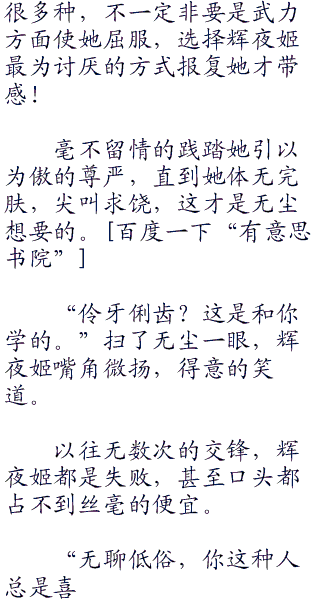 很多种，不一定非要是武力
方面使她屈服，选择辉夜姬
最为讨厌的方式报复她才带
感！
毫不留情的践踏她引以
为傲的尊严，直到她体无完
肤，尖叫求饶，这才是无尘
想要的。[百度一下“有意思
书院”]
“伶牙俐齿？这是和你
学的。”扫了无尘一眼，辉
夜姬嘴角微扬，得意的笑
道。
以往无数次的交锋，辉
夜姬都是失败，甚至口头都
占不到丝毫的便宜。
“无聊低俗，你这种人
总是喜